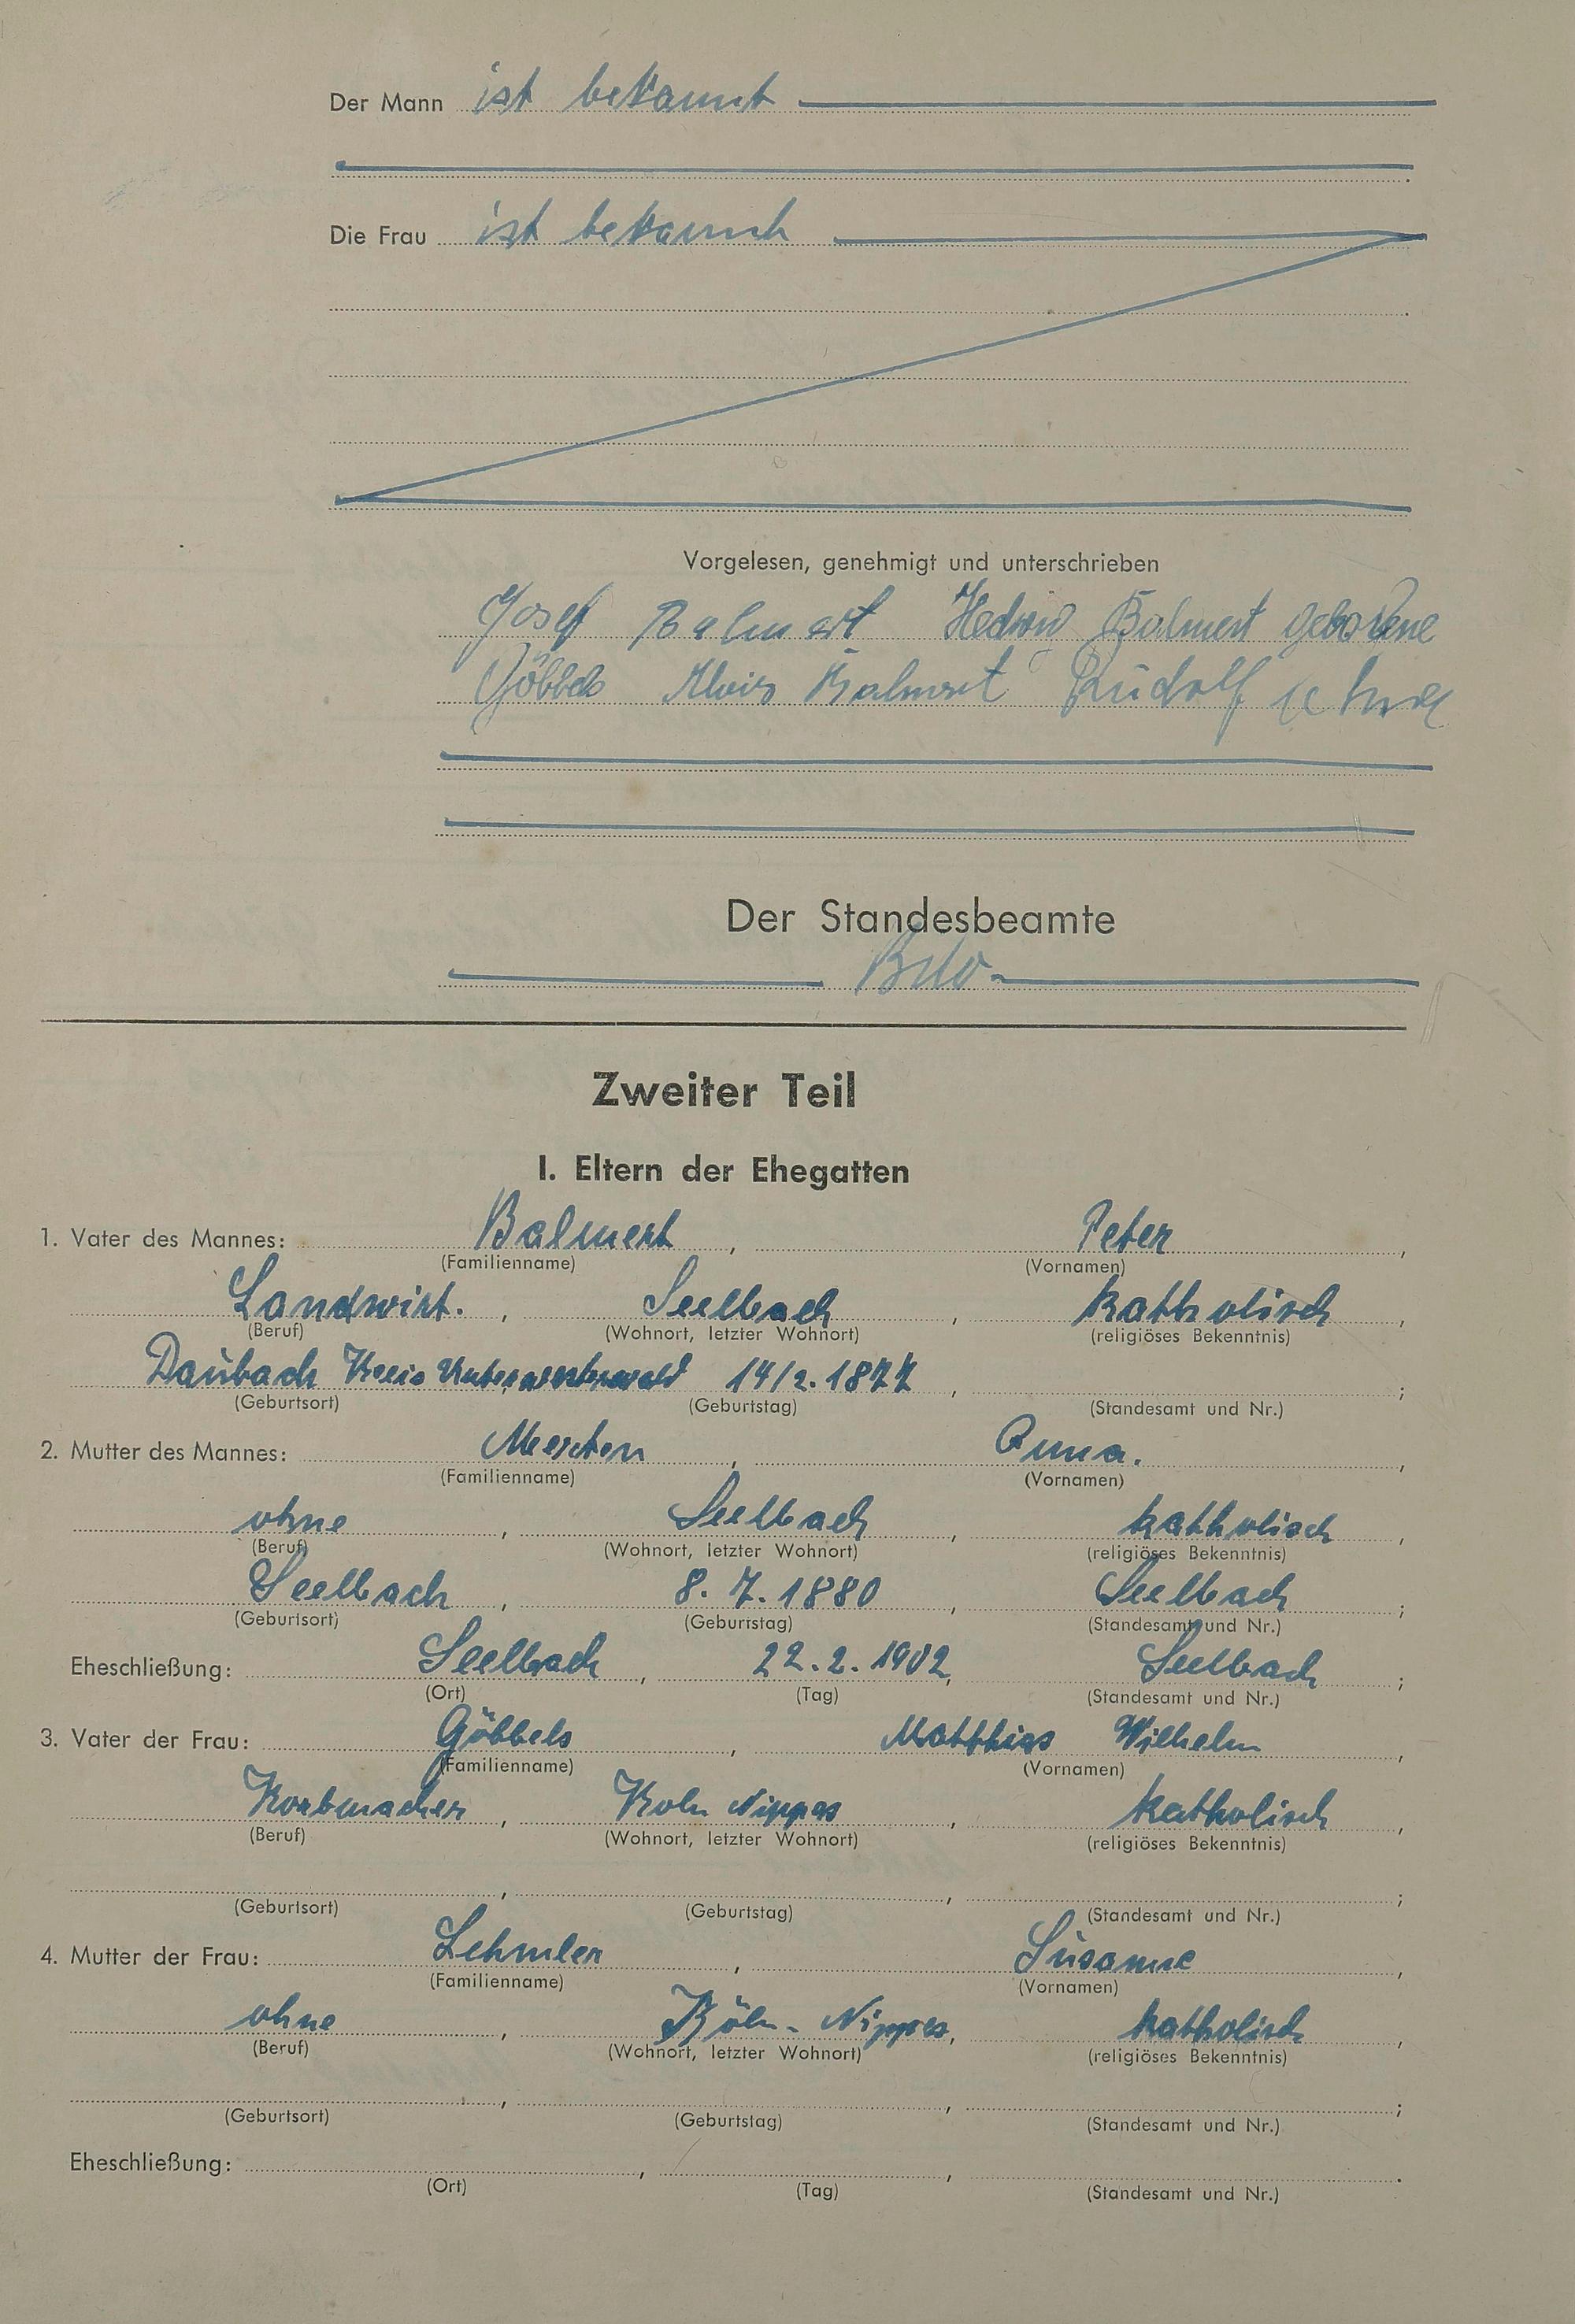 Der Mann ist bekannt
Die Frau ist bekannt
Vorgelesen, genehmigt und unterschrieben
Josef Balmert Hedwig Balmert geborene
Göbbels Alois Balmert Rudolf
Der Standesbeamte
Zweiter Teil
I. Eltern der Ehegatten
1. Vater des Mannes: Balmert, Peter,
(Familienname) (Vornamen)
Landwirt., Seelbach, katholisch,
(Beruf) (Wohnort, letzter Wohnort) (religiöses Bekenntnis)
Daubach Kreis Unterwesterwald 14/2. 1877,;
(Geburtsort) (Geburtstag) (Standesamt und Nr.)
2. Mutter des Mannes: Merten, Anna.,
(Familienname) (Vornamen)
ohne, Seelbach, katholisch,
(Beruf) (Wohnort, letzter Wohnort) (religiöses Bekenntnis)
Seelbach, 8. 7. 1880, Seelbach;
(Geburtsort) (Geburtstag) (Standesamt und Nr.)
Eheschließung: Seelbach, 22. 2. 1902, Seelbach;
(Ort) (Tag) (Standesamt und Nr.)
3. Vater der Frau: Göbbels, Matthias Wilhelm,
(Familienname) (Vornamen)
Korbmacher, Köln Nippes, katholisch,
(Beruf) (Wohnort, letzter Wohnort) (religiöses Bekenntnis)
, , ;
(Geburtsort) (Geburtstag) (Standesamt und Nr.)
4. Mutter der Frau: Lehmler, Susanne,
(Familienname) (Vornamen)
ohne, Köln-Nippes, katholisch,
(Beruf) (Wohnort, letzter Wohnort) (religiöses Bekenntnis)
, , ;
(Geburtsort) (Geburtstag) (Standesamt und Nr.)
Eheschließung: , , .
(Ort) (Tag) (Standesamt und Nr.)